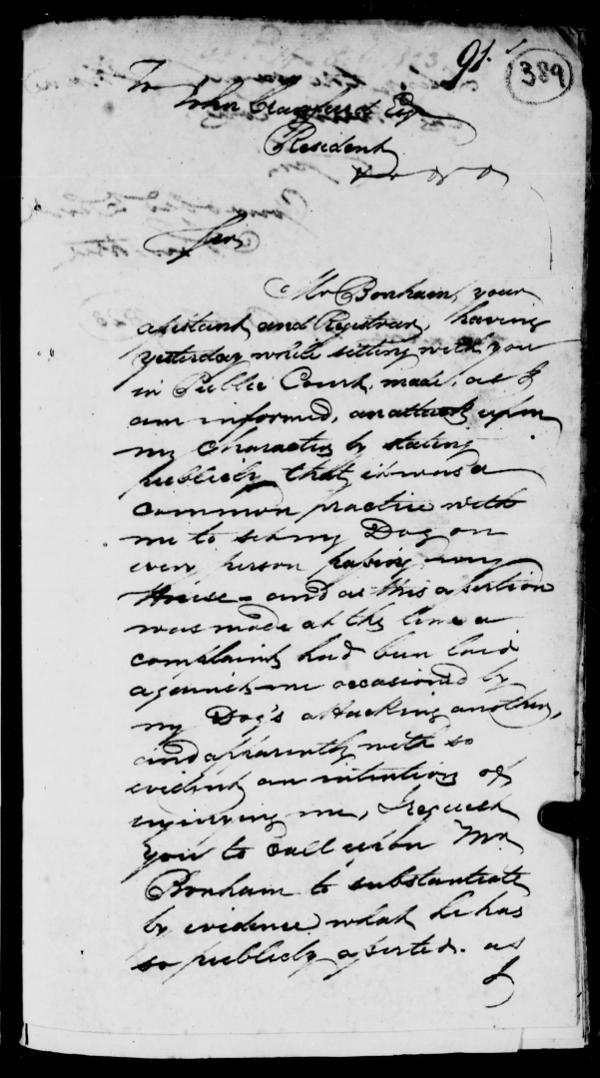 91.
389
To
John Crawfurd Esqr
Resident
Sir,
Mr Bonham, your
assistant and Registrar, having
yesterday while sitting with you
in Public Court, made, as I
am informed, an attack upon
my Character by stating
publicly that it was a
common practice with
me to set my Dog on
every person passing my
House - and as this assertion
was made at the time a
complaint had been laid
against me occasioned by
my Dog's attacking another,
and apparently with so
evident an intention of
injuring me, I request
you to call upon Mr
Bonham to substantiate
by evidence what he has
so publicly asserted. as
I